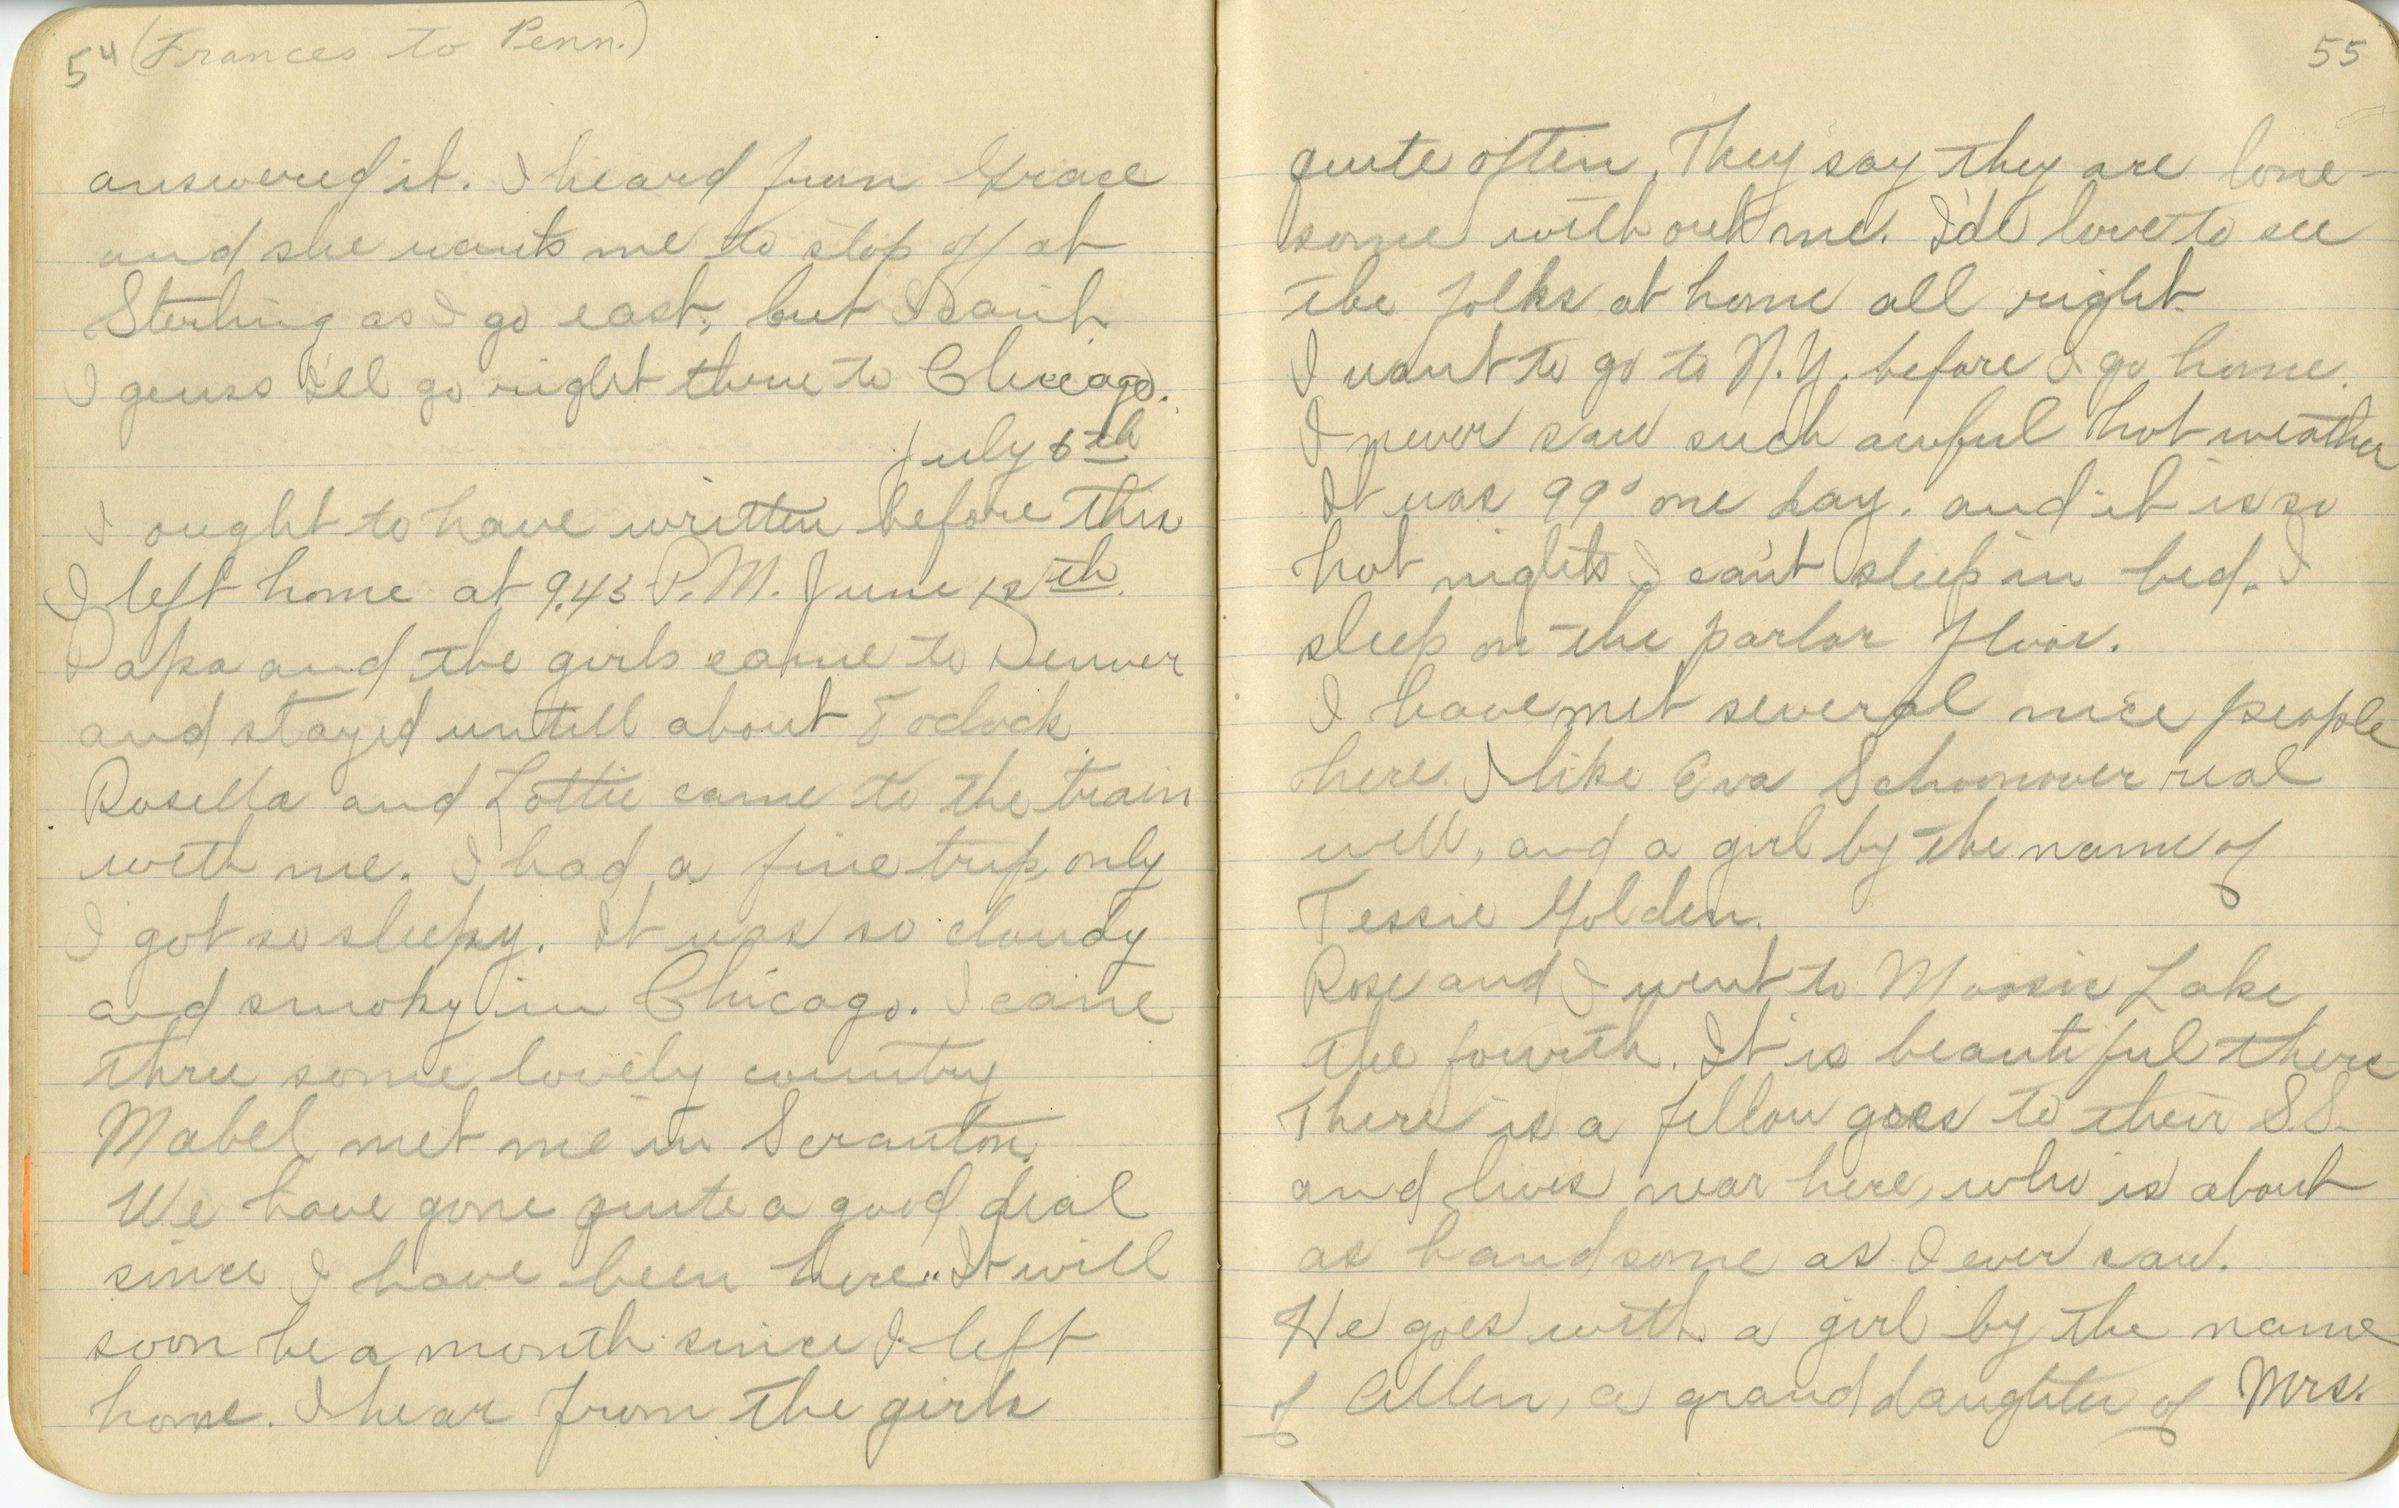 54 (Frances to Penn.)
answered it. I heard from Grace
and she wants me to stop off at
Sterling as I go east, but I can't.
I geuss I'll go right thru to Chicago.
July 6th
I ought to have written before this
I left home at 9.45 P.M. June 12th.
Papa and the girls came to Denver
and stayed untill about 5 oclock
Rosella and Lottie came to the train
with me. I had a fine trip, only
I got so sleepy. It was so cloudy
and smoky in Chicago. I came
thru some lovely country
Mabel met me in Scranton.
We have gone quite a good deal
since I have been here. It will
soon be a month since I left
home. I hear from the girls
55
quite often. They say they are lone-
some without me. I'd love to see
the folks at home all right.
I want to go to N.Y. before I go home.
I never saw such awful hot weather
It was 99° one day. and it is so
hot nights I can't sleep in bed. I
sleep on the parlor floor.
I have met several nice people
here. I like Eva Schoonover real
well, and a girl by the name of
Tessie Golden.
Rose and I went to Moosic Lake
the fourth. It is beautiful there
There is a fellow goes to their S.S.
and lives near here, who is about
as handsome as I ever saw.
He goes with a girl by the name
of Allen, a granddaughter of Mrs.